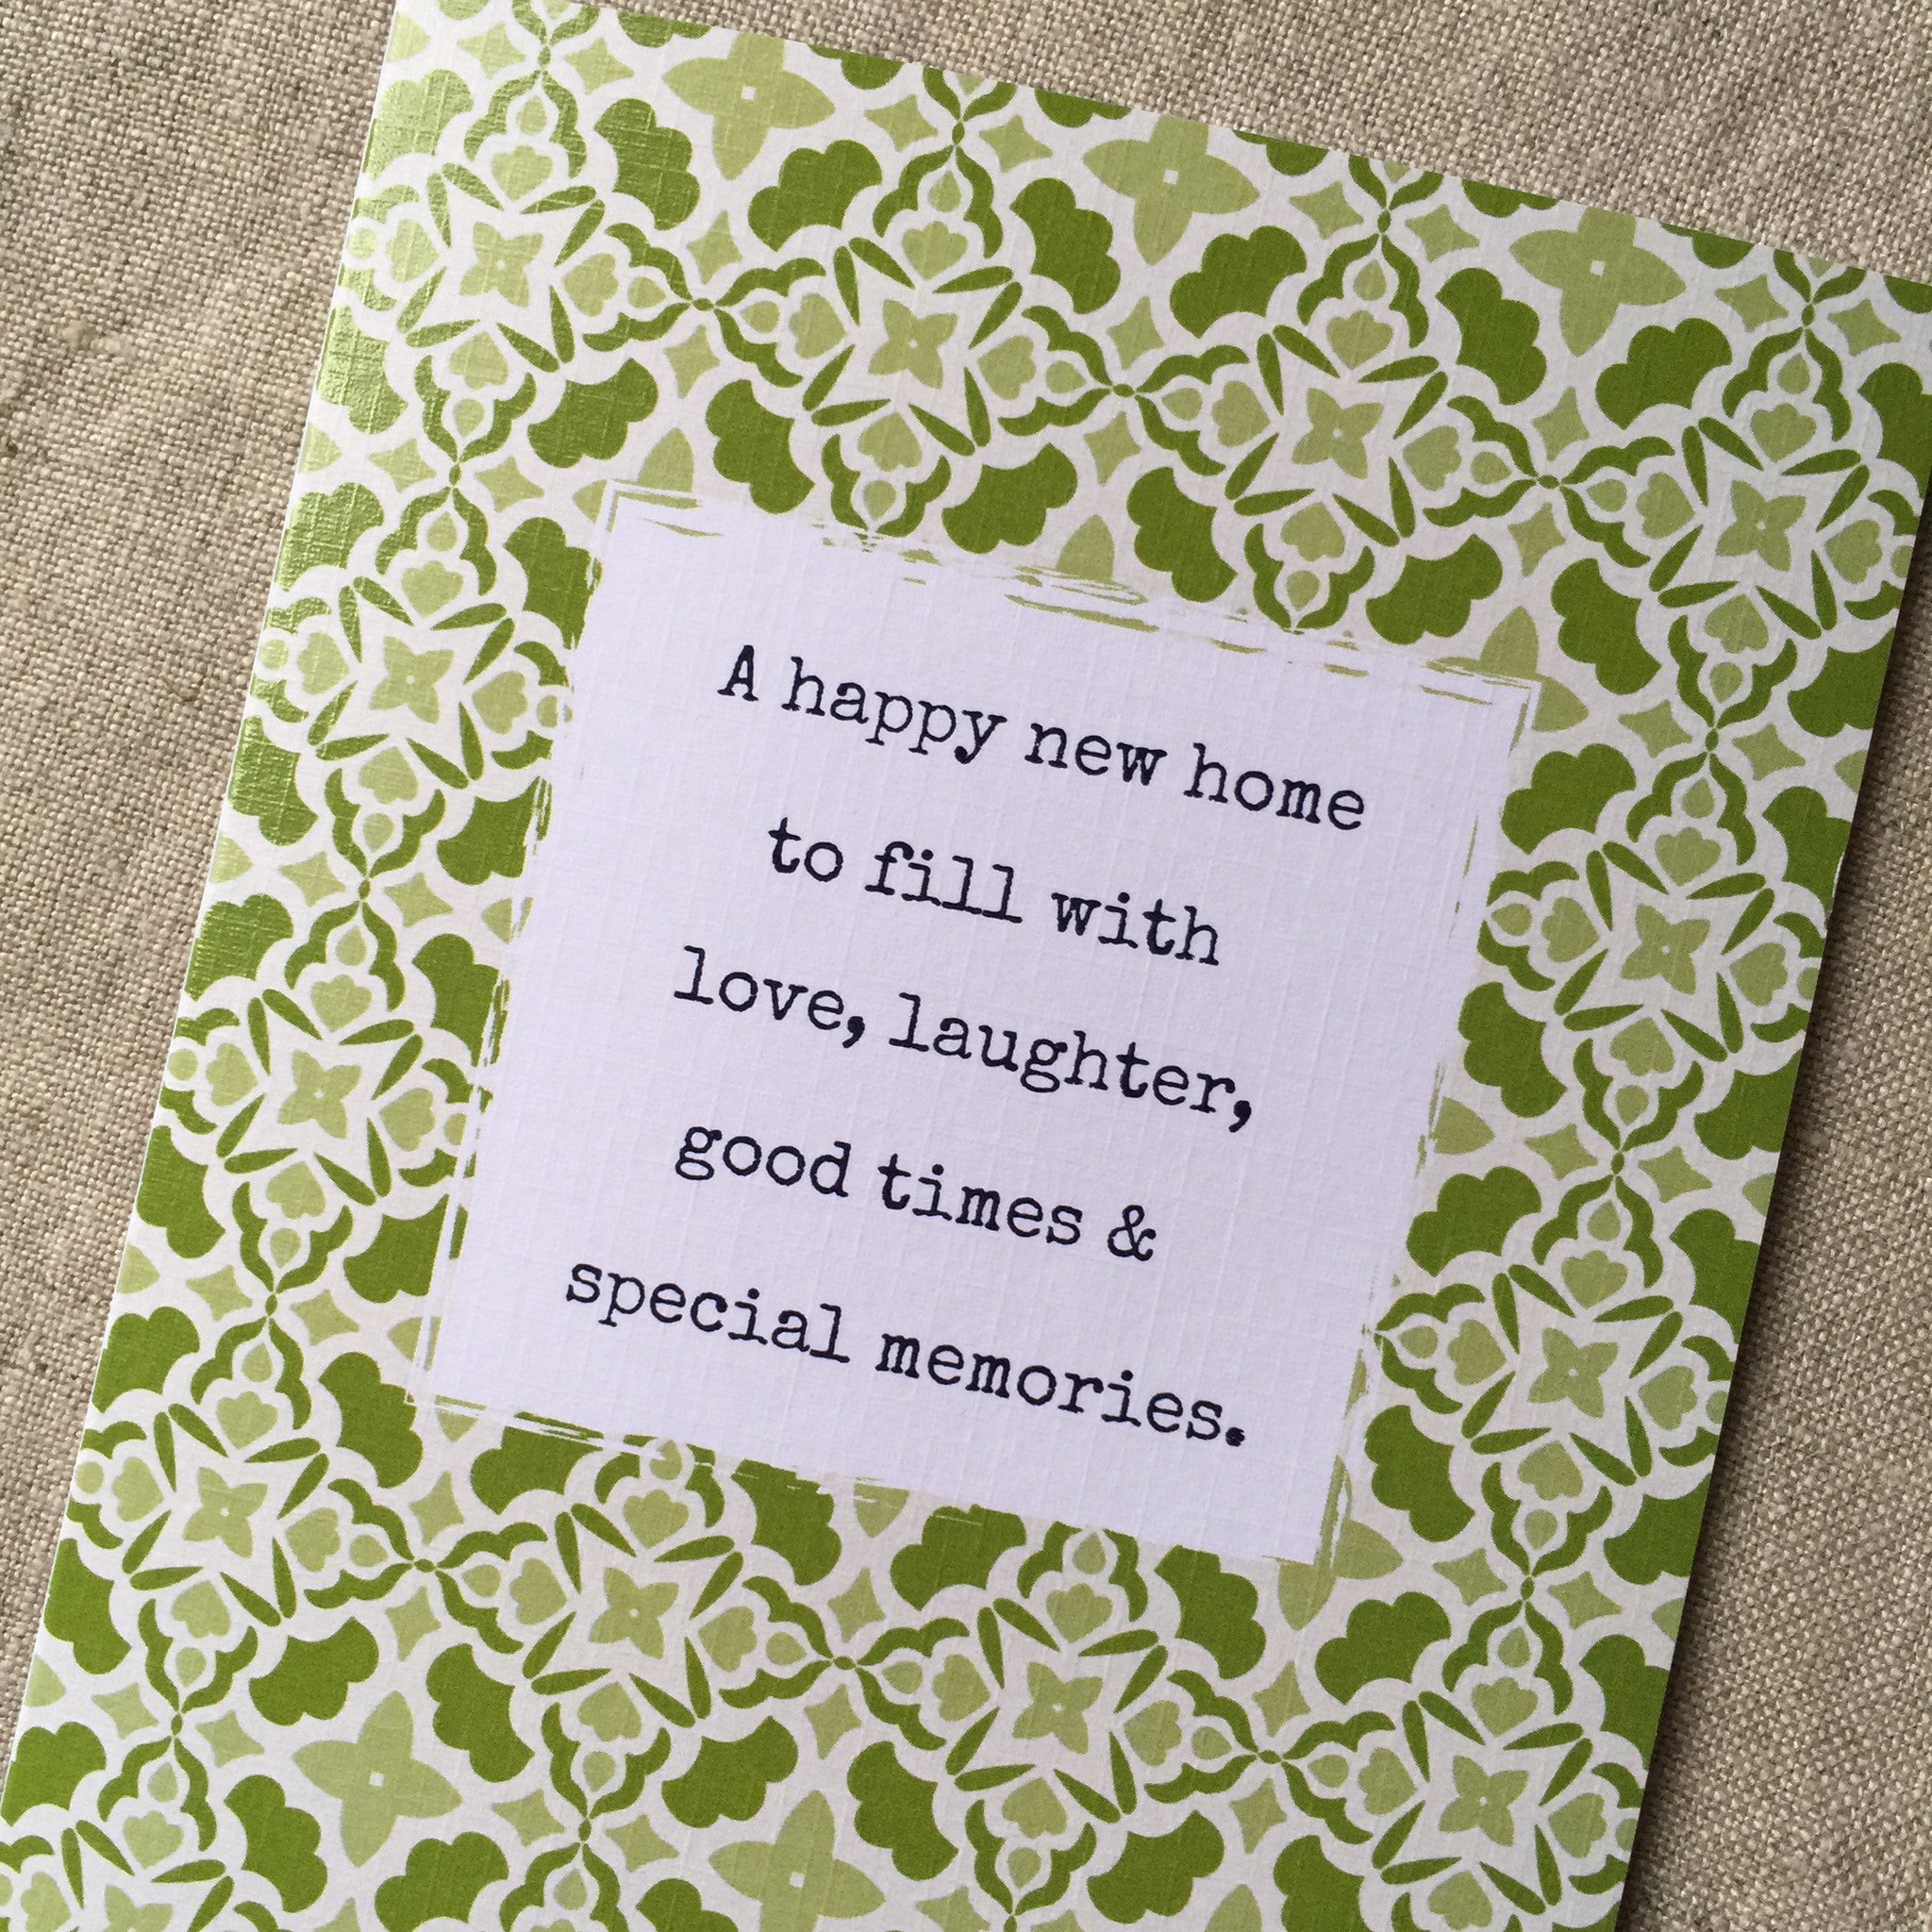 A happy new home
to fill with
love, laughter,
good times &
special memories.